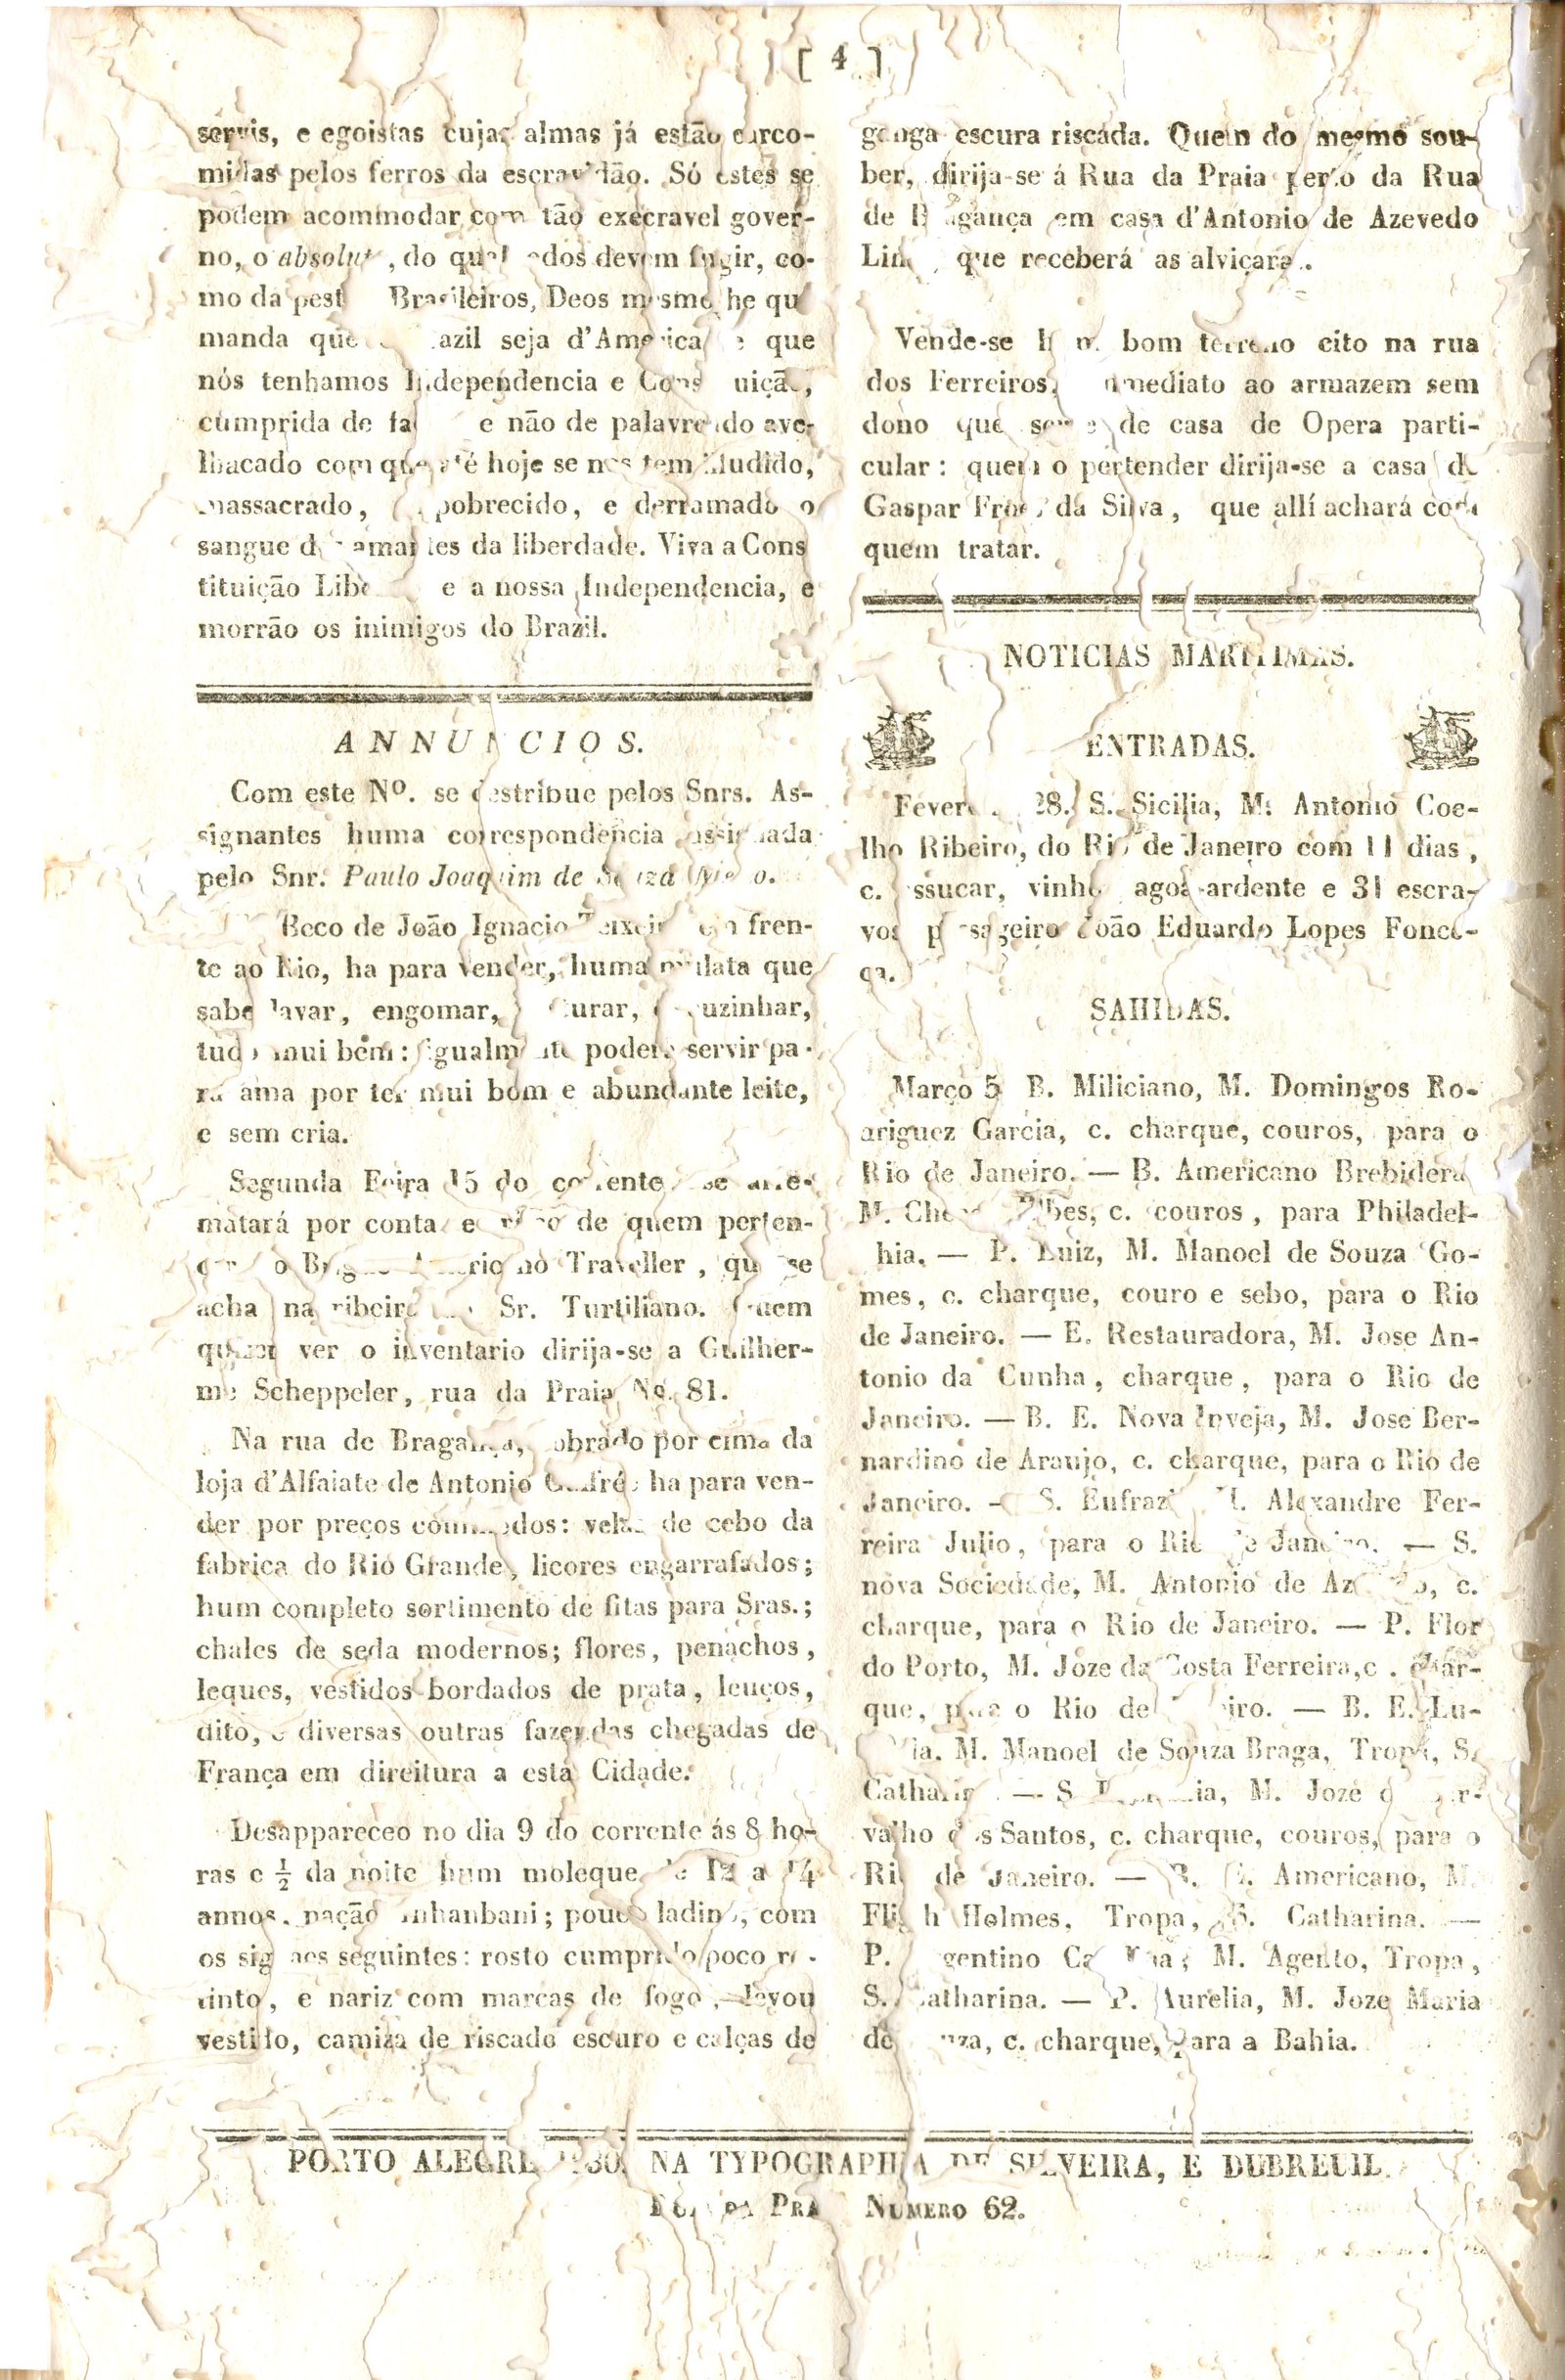 [ 4 ]
servis, e egoistas cujas almas já estão carco-
midas pelos ferros da escravidão. Só estes se
podem acommodar com tão execravel gover-
no, o absoluto, do qual todos devem fugir, co-
mo da peste Brasileiros, Deos mesmo he qu
manda que Brazil seja d'America e que
nós tenhamos Independencia e Constituição,
cumprida de e não de palavreado ave-
lhacado com que até hoje se nos tem illudido,
massacrado, empobrecido, e derramado o
sangue dos amantes da liberdade. Viva a Cons
tituição Liberal e a nossa Independencia, e
morrão os inimigos do Brazil.
ANNUNCIOS.
Com este Nº. se destribue pelos Snrs. As-
signantes huma correspondencia assignada
pelo Snr. Paulo Joaquim de Souza
Beco de João Ignacio Teixeira em fren-
te ao Rio, ha para vender, huma mulata que
sabe lavar, engomar, custurar, e cuzinhar,
tudo mui bem: igualmente podera servir pa-
ra ama por ter mui bom e abundante leite,
e sem cria.
Segunda Feira 15 do corrente se arre-
matará por conta e risco de quem perten-
cer o Brigue Americano Traveller, que se
acha na ribeira do Sr. Turtiliano. Quem
quizer ver o inventario dirija-se a Guilher-
me Scheppeler, rua da Praia No. 81.
Na rua de Bragança, sobrado por cima da
loja d'Alfaiate de Antonio ha para ven-
der por preços commodos: velas de cebo da
fabrica do Rio Grande, licores engarrafados;
hum completo sortimento de fitas para Sras.;
chales de seda modernos; flores, penachos,
leques, vestidos bordados de prata, lenços,
dito, e diversas outras fazendas chegadas de
França em direitura a esta Cidade.
Desappareceo no dia 9 do corrente ás 8 ho-
ras e ½ da noite hum moleque de 12 a 14
annos, nação Inhanbani; pouco ladino, com
os signaes seguintes: rosto cumprido poco re-
tinto, e nariz com marcas de fogo, levou
vestido, camiza de riscado escuro e calças de
ganga escura riscada. Quem do mesmo sou-
ber, dirija-se á Rua da Praia perto da Rua
de Bragança em casa d'Antonio de Azevedo
Lima, que receberá as alviçaras.
Vende-se hum bom terreno cito na rua
dos Ferreiros, immediato ao armazem sem
dono que serve de casa de Opera parti-
cular: quem o pertender dirija-se a casa de
Gaspar Froes da Silva, que allí achará com
quem tratar.
NOTICIAS MARITIMAS.
ENTRADAS.
Fevereiro 28. S. Sicilia, M. Antonio Coe-
lho Ribeiro, do Rio de Janeiro com 11 dias,
c. assucar, vinho agoa-ardente e 31 escra-
vos passageiro João Eduardo Lopes Fonce-
ca.
SAHIDAS.
Março 5 B. Miliciano, M. Domingos Ro-
driguez Garcia, c. charque, couros, para o
Rio de Janeiro. — B. Americano Brebidera
M. c. couros, para Philadel-
phia. — P. Luiz, M. Manoel de Souza Go-
mes, c. charque, couro e sebo, para o Rio
de Janeiro. — E. Restauradora, M. Jose An-
tonio da Cunha, charque, para o Rio de
Janeiro. — B. E. Nova Inveja, M. Jose Ber-
nardino de Araujo, c. charque, para o Rio de
Janeiro. — S. Eufrazia M. Alexandre Fer-
reira Julio, para o Rio de Janeiro. — S.
nova Sociedade, M. Antonio de Azevedo, c.
charque, para o Rio de Janeiro. — P. Flor
do Porto, M. Joze da Costa Ferreira, c. char-
que, para o Rio de Janeiro. — B. E. Lu-
M. Manoel de Souza Braga, Tropa, S.
Catharina. — S. M. Joze de Car-
valho dos Santos, c. charque, couros, para o
Rio de Janeiro. — B. Americano, M.
Holmes, Tropa, S. Catharina. —
P. Argentino M. Agento, Tropa,
S. Catharina. — P. Aurelia, M. Joze Maria
de Souza, c. charque, para a Bahia.
PORTO ALEGRE 1830. NA TYPOGRAPHIA DE SILVEIRA, E DUBREUIL.
RUA DA PRAIA NUMERO 62.